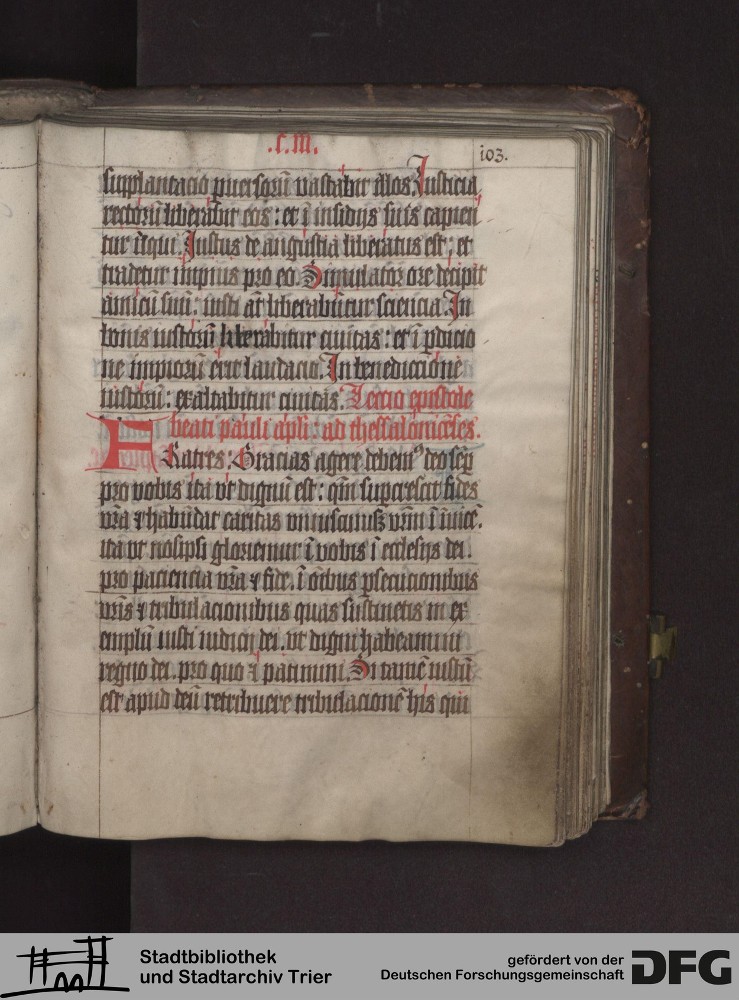 .c.iii.
103.
supplantacio puersorū vastabit illos. Iusticia
rectorū liberabit eos : et ī insidijs suis capien
tur iīqui. Iustus de angustia liberatus est ; et
tradetur impius pro eo. Simulator ore decipit
amicū suū : iusti aūt liberabūtur sciencia. In
bonis iustorū liberabitur ciuitas : et ī pdicio
ne impiorū erit laudacio. In benediccione
iustorū : exaltabitur ciuitas. Leccio epistole
beati pauli apli : ad thessalonicēses.
FRatres : Gracias agere debemꝰ deo semp
pro vobis ita vt dignū est : qm̄ supcrescit fides
vrā ⁊ habūdat caritas vniuscuiusꝫ vrm̄ ī īuicē.
ita vt nosipsi gloriemur ī vobis ī ecclesijs dei.
pro paciencia vrā ⁊ fide. ī oībus psecucionibus
vrīs ⁊ tribulacionibus quas sustinetis in ex
emplū iusti iudicij dei. vt digni habeamini
regno dei. pro quo ⁊ patimini. Si tamē iustū
est apud deū retribuere tribulacionē hijs qui
Stadtbibliothek
und Stadtarchiv Trier
gefördert von der
Deutschen Forschungsgemeinschaft
DFG